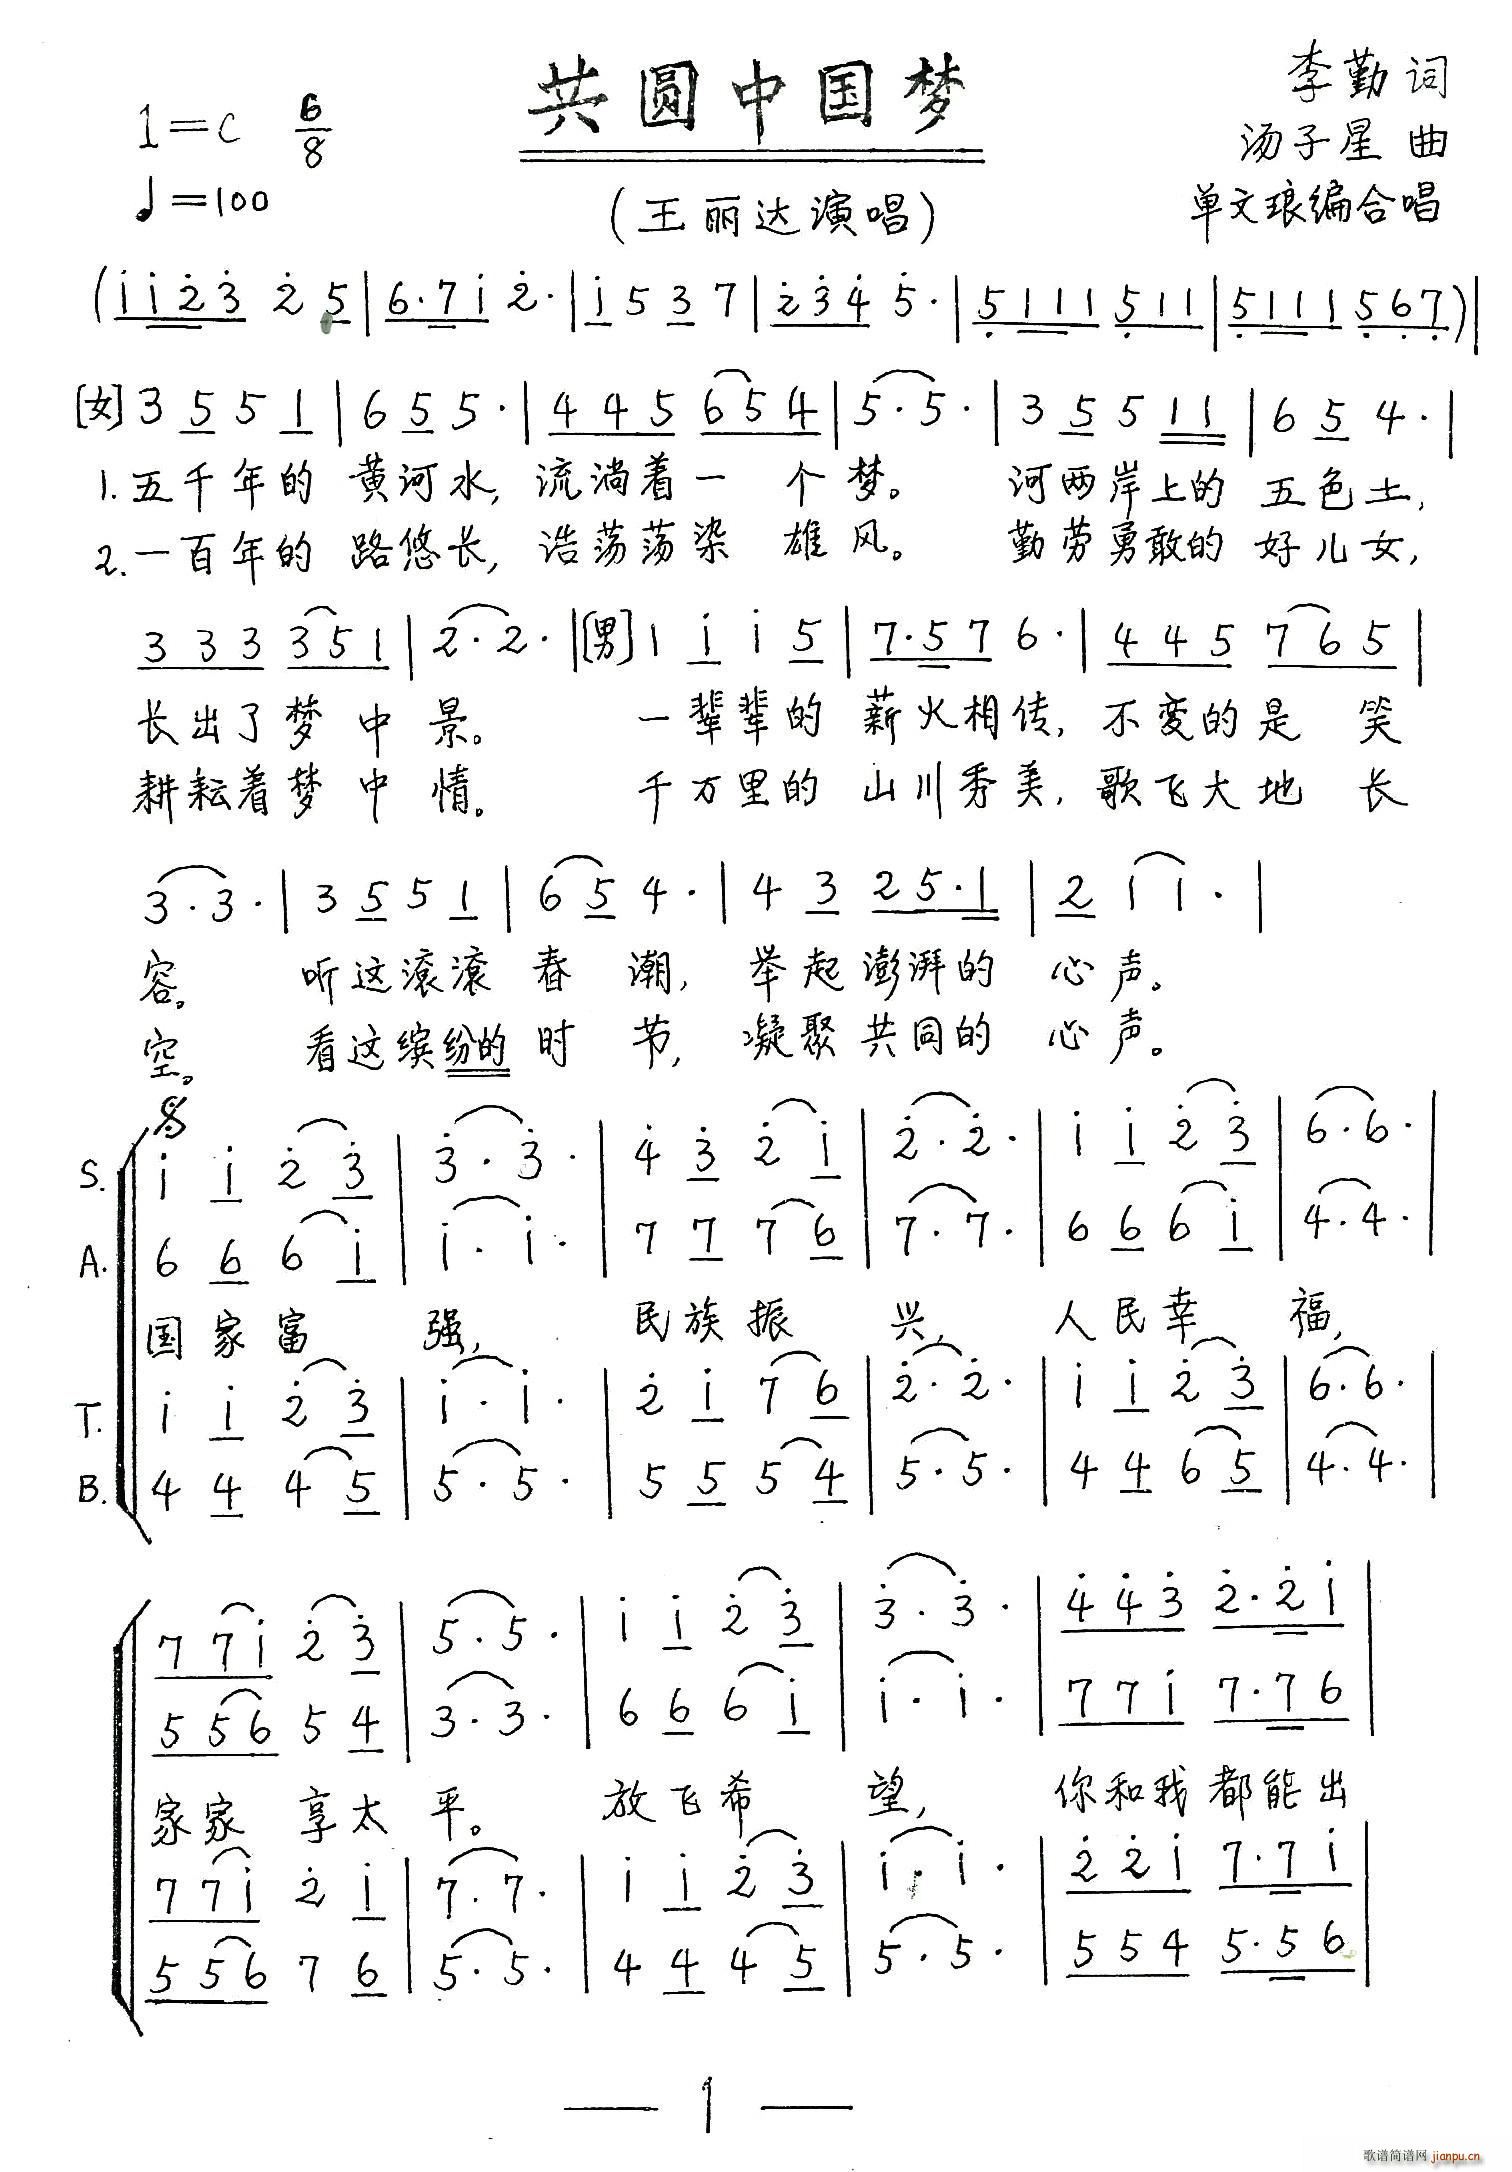 共圆中国梦
李勤词
1=C 6/8
汤子星 曲
♩=100
(王丽达演唱)
单文琅编合唱
(i i 2̇ 3̇ 2̇ 5 | 6·7 i 2̇· | i 5 3 7 | 2̇ 3̇ 4̇ 5̇· | 5̣ 1 1 1 5̣ 1 1 | 5̣ 1 1 1 5̣ 6̣ 7̣) |
[女] 3 5 5 1 | 6 5 5· | 4 4 5 6 5 4 | 5·5· | 3 5 5 1 1 | 6 5 4· |
1.五千年的 黄河水,流淌着一 个 梦。 河两岸上的 五色土,
2.一百年的 路悠长,浩荡荡染 雄风。 勤劳勇敢的 好儿女,
3 3 3 3 5 1 | 2·2· | [男] 1 i i 5 | 7·5 7 6· | 4 4 5 7 6 5 |
长出了梦 中 景。 一辈辈的 薪火相传,不变的是 笑
耕耘着梦 中 情。 千万里的 山川秀美,歌飞大地 长
3·3· | 3 5 5 1 | 6 5 4· | 4 3 2 5·1 | 2 1 1· |
容。 听这滚滚 春 潮, 举起澎湃的 心声。
空。 看这缤纷的 时 节, 凝聚共同的 心声。
S. i i 2̇ 3̇ | 3̇·3̇· | 4̇ 3̇ 2̇ i | 2̇·2̇· | i i 2̇ 3̇ | 6·6· |
A. 6 6 6 i | i·i· | 7 7 7 6 | 7·7· | 6 6 6 i | 4·4· |
国家富 强, 民族振 兴, 人民幸 福,
T. i i 2̇ 3̇ | i·i· | 2̇ i 7 6 | 2̇·2̇· | i i 2̇ 3̇ | 6·6· |
B. 4 4 4 5 | 5·5· | 5 5 5 4 | 5·5· | 4 4 6 5 | 4·4· |
7 7 i 2̇ 3̇ | 5·5· | i i 2̇ 3̇ | 3̇·3̇· | 4̇ 4̇ 3̇ 2̇·2̇ i |
5 5 6 5 4 | 3·3· | 6 6 6 i | i·i· | 7 7 i 7·7 6 |
家家 享太 平。 放飞希 望, 你和我都能出
7 7 i 2̇ i | 7·7· | i i 2̇ 3̇ | i·i· | 2̇ 2̇ i 7·7 i |
5 5 6 7 6 | 5·5· | 4 4 4 5 | 5·5· | 5 5 4 5·5 6 |
— 1 —
歌谱简谱网 jianpu.cn